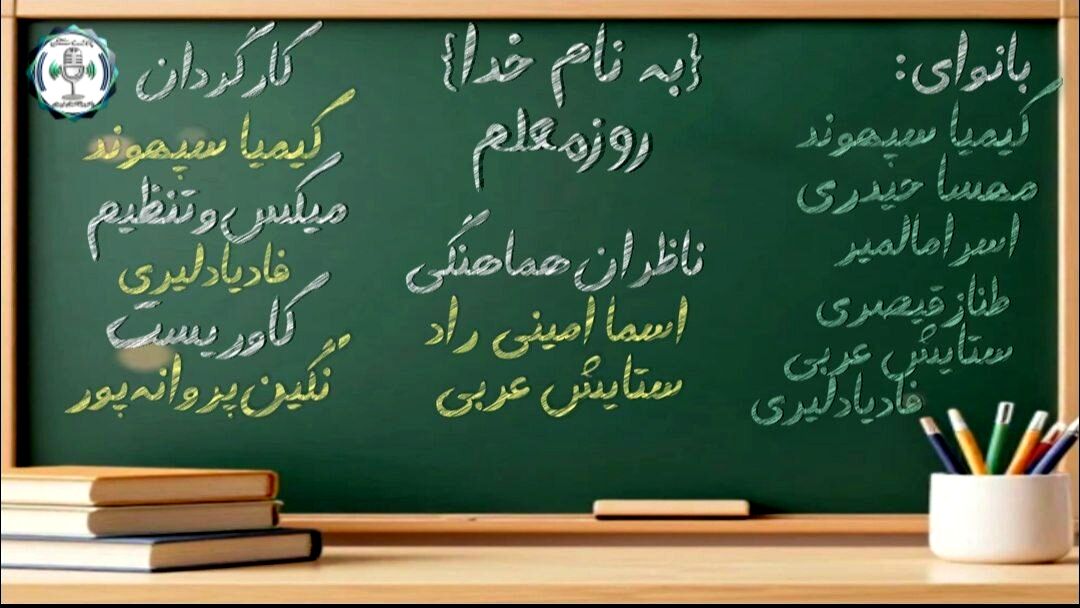 {به نام خدا}
روز معلم
بانوای:
کیمیا سپهوند
مهسا حیدری
اسرا مالمیر
طناز قیصری
ستایش عربی
فادیا دلیری
ناظران هماهنگی
اسما امینی راد
ستایش عربی
کارگردان
کیمیا سپهوند
میکس و تنظیم
فادیا دلیری
کاوریست
نگین پروانه پور